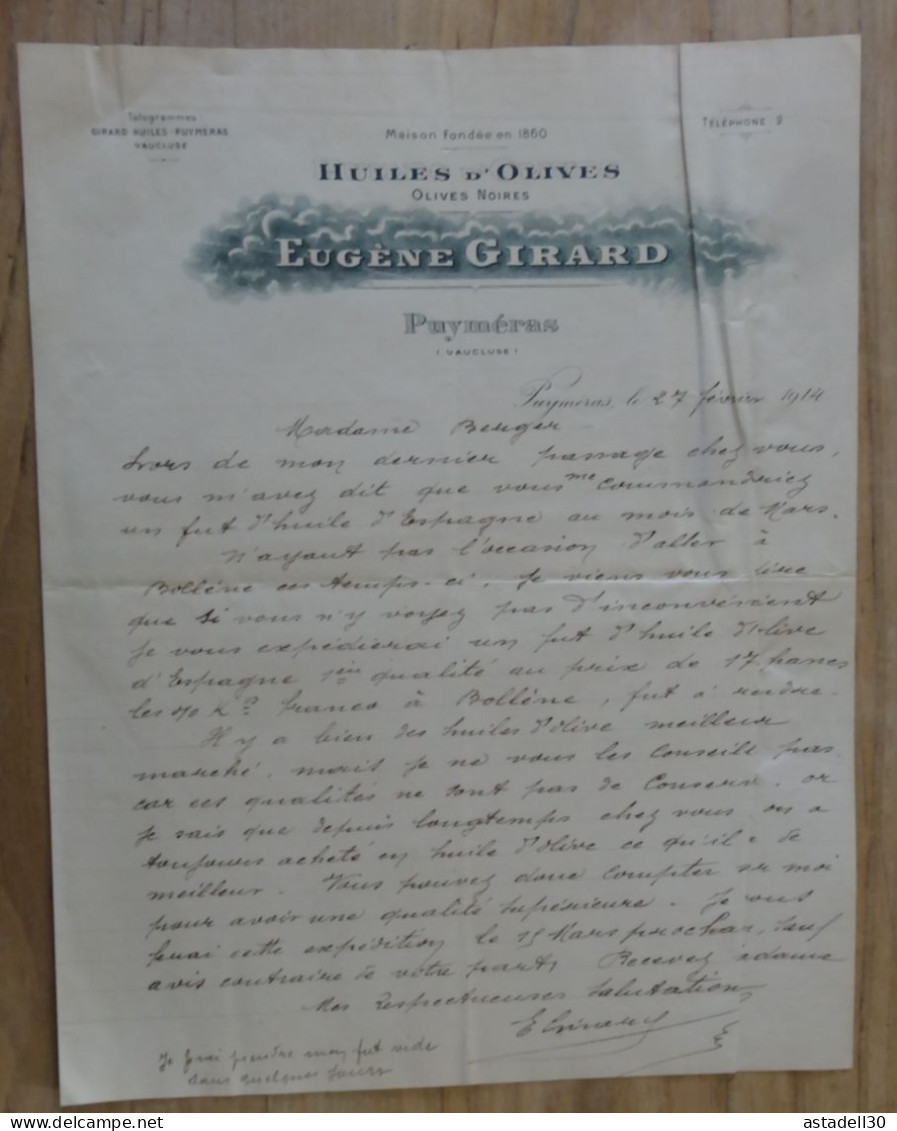 Telegrammes
GIRARD HUILES-PUYMERAS
VAUCLUSE
Maison fondée en 1860
TÉLÉPHONE 2
HUILES D'OLIVES
OLIVES NOIRES
EUGÈNE GIRARD
Puyméras
(VAUCLUSE)
Puymeras, le 27 février 1914
Madame Berger
Lors de mon dernier passage chez vous,
vous m'avez dit que vous me commandriez
un fut d'huile d'Espagne au mois de Mars.
N'ayant pas l'occasion d'aller à
Bollène ces temps-ci, je viens vous dire
que si vous n'y voyez pas d'inconvénient
je vous expédierai un fut d'huile d'olive
d'Espagne 1ère qualité au prix de 17 francs
les 10 Kos franco à Bollène, fut à rendre.
Il y a bien des huiles d'olive meilleur
marché, mais je ne vous les conseille pas
car ces qualités ne sont pas de conserve. or
je sais que depuis longtemps chez vous on a
toujours acheté en huile d'olive ce qu'il a de
meilleur. Vous pouvez donc compter sr moi
pour avoir une qualité supérieure. Je vous
ferai cette expédition le 15 Mars prochain, sauf
avis contraire de votre part. Recevez
Mes Respectueuses salutations
E Girard
Je ferai prendre mon fut vide
dans quelques jours
astadell30